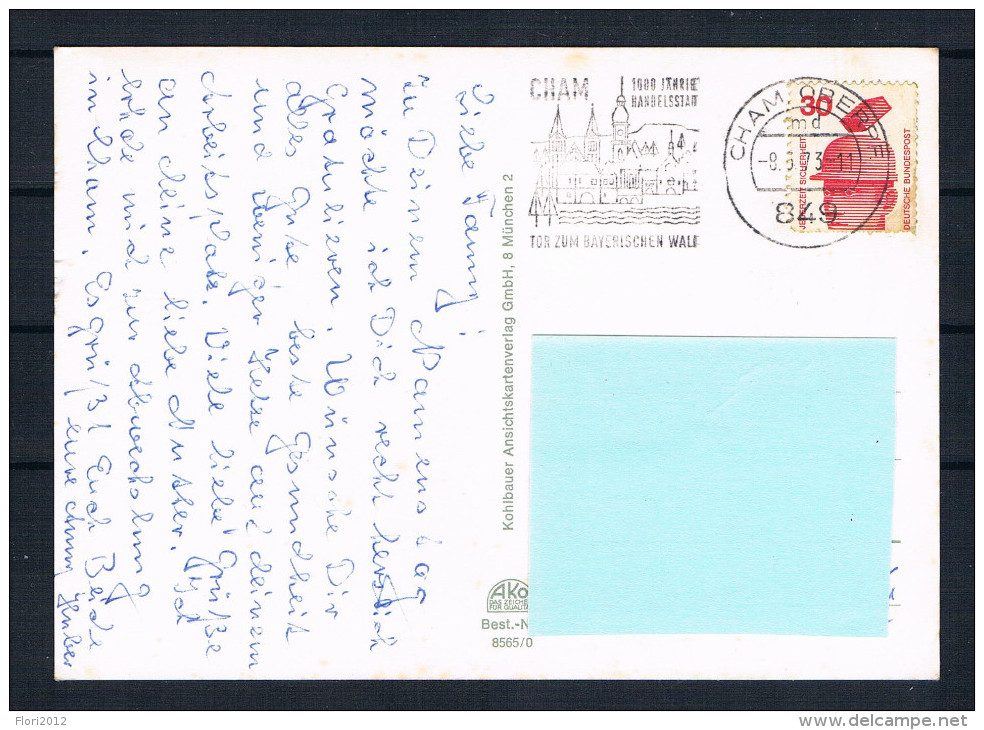 Liebe Fanny!
Zu Deinem Namenstag
möchte ich Dich recht herzlich
Gratulieren. Wünsche Dir
alles Gute beste Gesundheit
und weniger Hetze auf deinem
Arbeitsplatz. Viele liebe Grüße
an deine liebe Mutter.
mich zur Abwechslung
in Cham. Es grüßt Euch Beide
eure Huber
Kohlbauer Ansichtskartenverlag GmbH, 8 München 2
AKo
DAS ZEICHE
FÜR QUALITÄ
Best.-N
8565/0
CHAM
1000 JÄHRIGE
HANDELSSTADT
TOR ZUM BAYERISCHEN WALD
CHAM, OBERPF
md
-8.3.73-11
849
30
JEDERZEIT SICHERHEIT
DEUTSCHE BUNDESPOST
Flori2012
www.delcampe.net